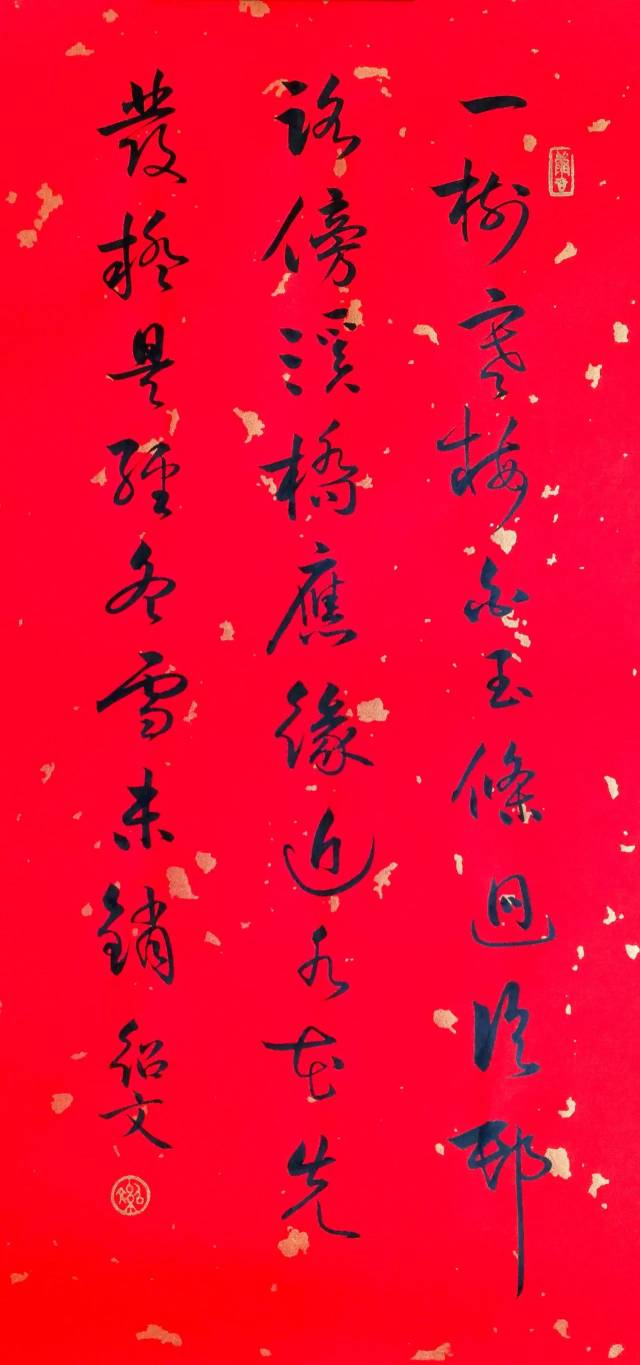 一樹寒梅白玉條迥臨邨
路傍溪橋應緣近水花先
發疑是經冬雪未銷 紹文